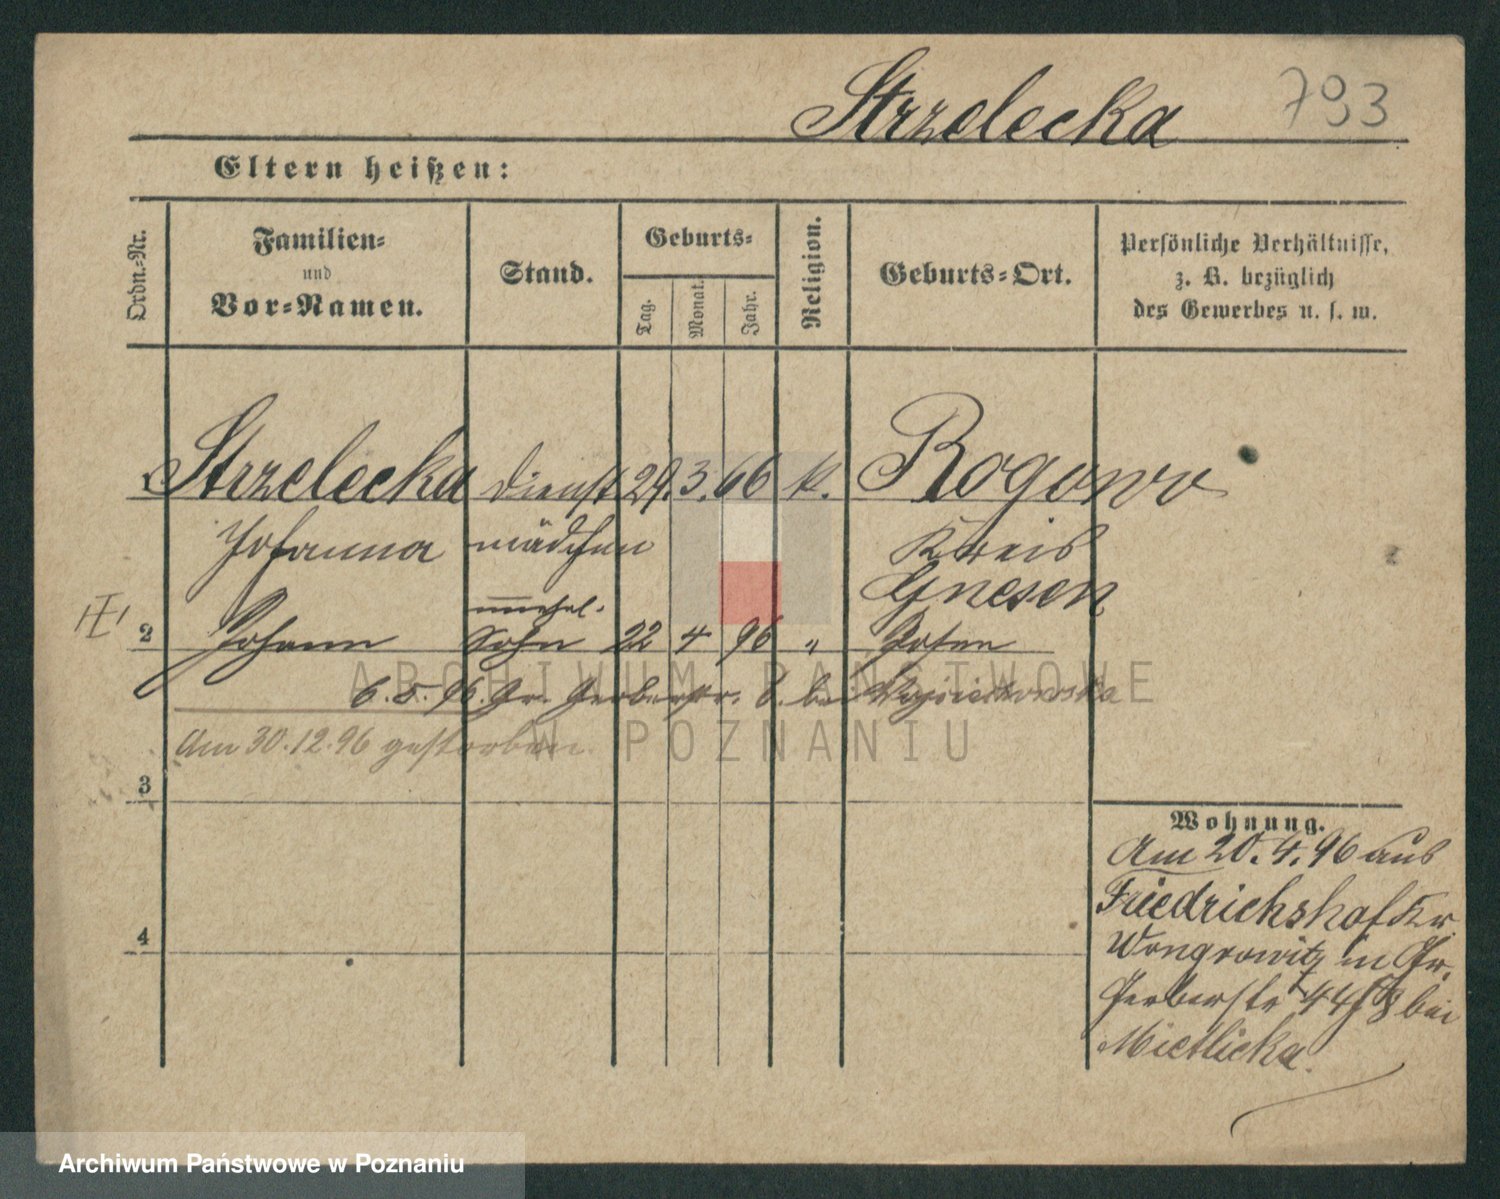 Strzelecka 793
Eltern heißen:
Ordn.-Nr. Familien- und Vor-Namen. Stand. Geburts- Tag. Monat. Jahr. Religion. Geburts-Ort. Persönliche Verhältnisse, z. B. bezüglich des Gewerbes u. s. w.
Strzelecka Dienst 24. 3. 66 k. Rogowo
Johanna mädchen Kreis
Gnesen
unehel.
2 Johann Sohn 22 4 96 " Posen
6. 5. 96. Gr. Gerberstr. 8. bei Wojciechowska
Am 30.12.96 gestorben
3
4
Wohnung.
Am 20.4.96 aus
Friedrichshof Kr.
Wongrowitz in Gr.
Gerberstr 44 bei
Mietlicka.
ARCHIWUM PAŃSTWOWE
W POZNANIU
Archiwum Państwowe w Poznaniu